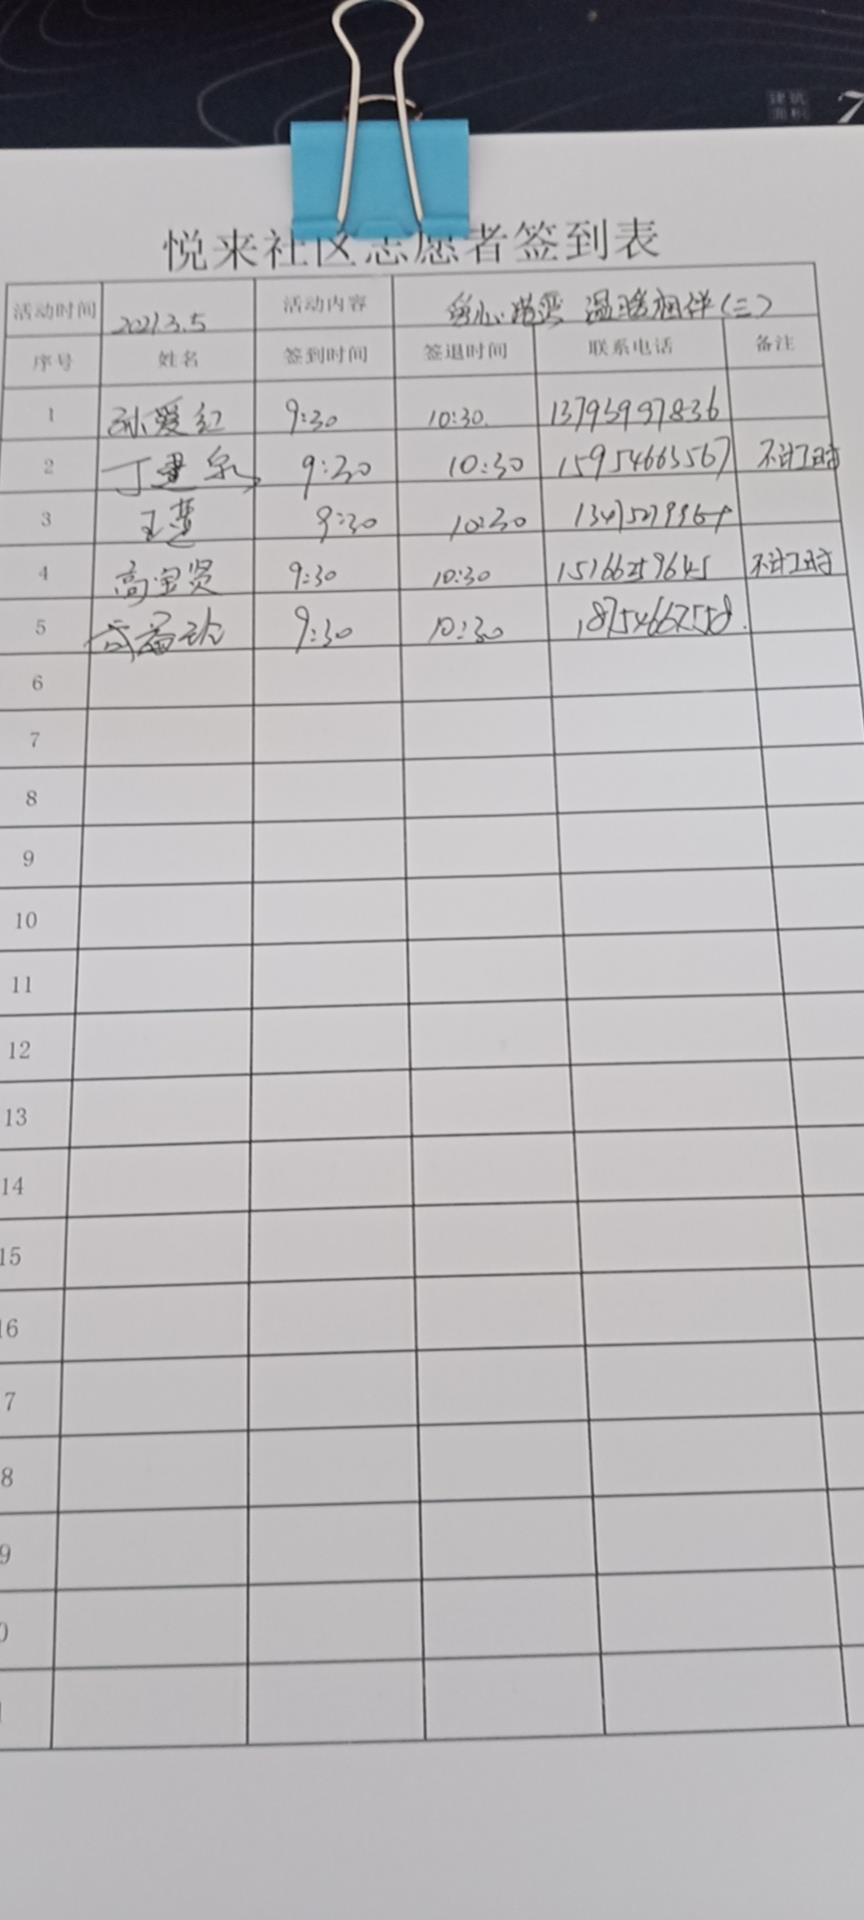 建筑
面积 7
悦来社区志愿者签到表
活动时间 2021.3.5 活动内容 温暖相伴(三)
序号 姓名 签到时间 签退时间 联系电话 备注
1 孙爱红 9:30 10:30 13793997836
2 丁建泉 9:30 10:30 15954663567 不计工时
3 王慧 9:30 10:30
4 高宝贤 9:30 10:30 15166259645 不计工时
5 9:30 10:30 18754662558
6
7
8
9
10
11
12
13
14
15
16
7
8
9
0